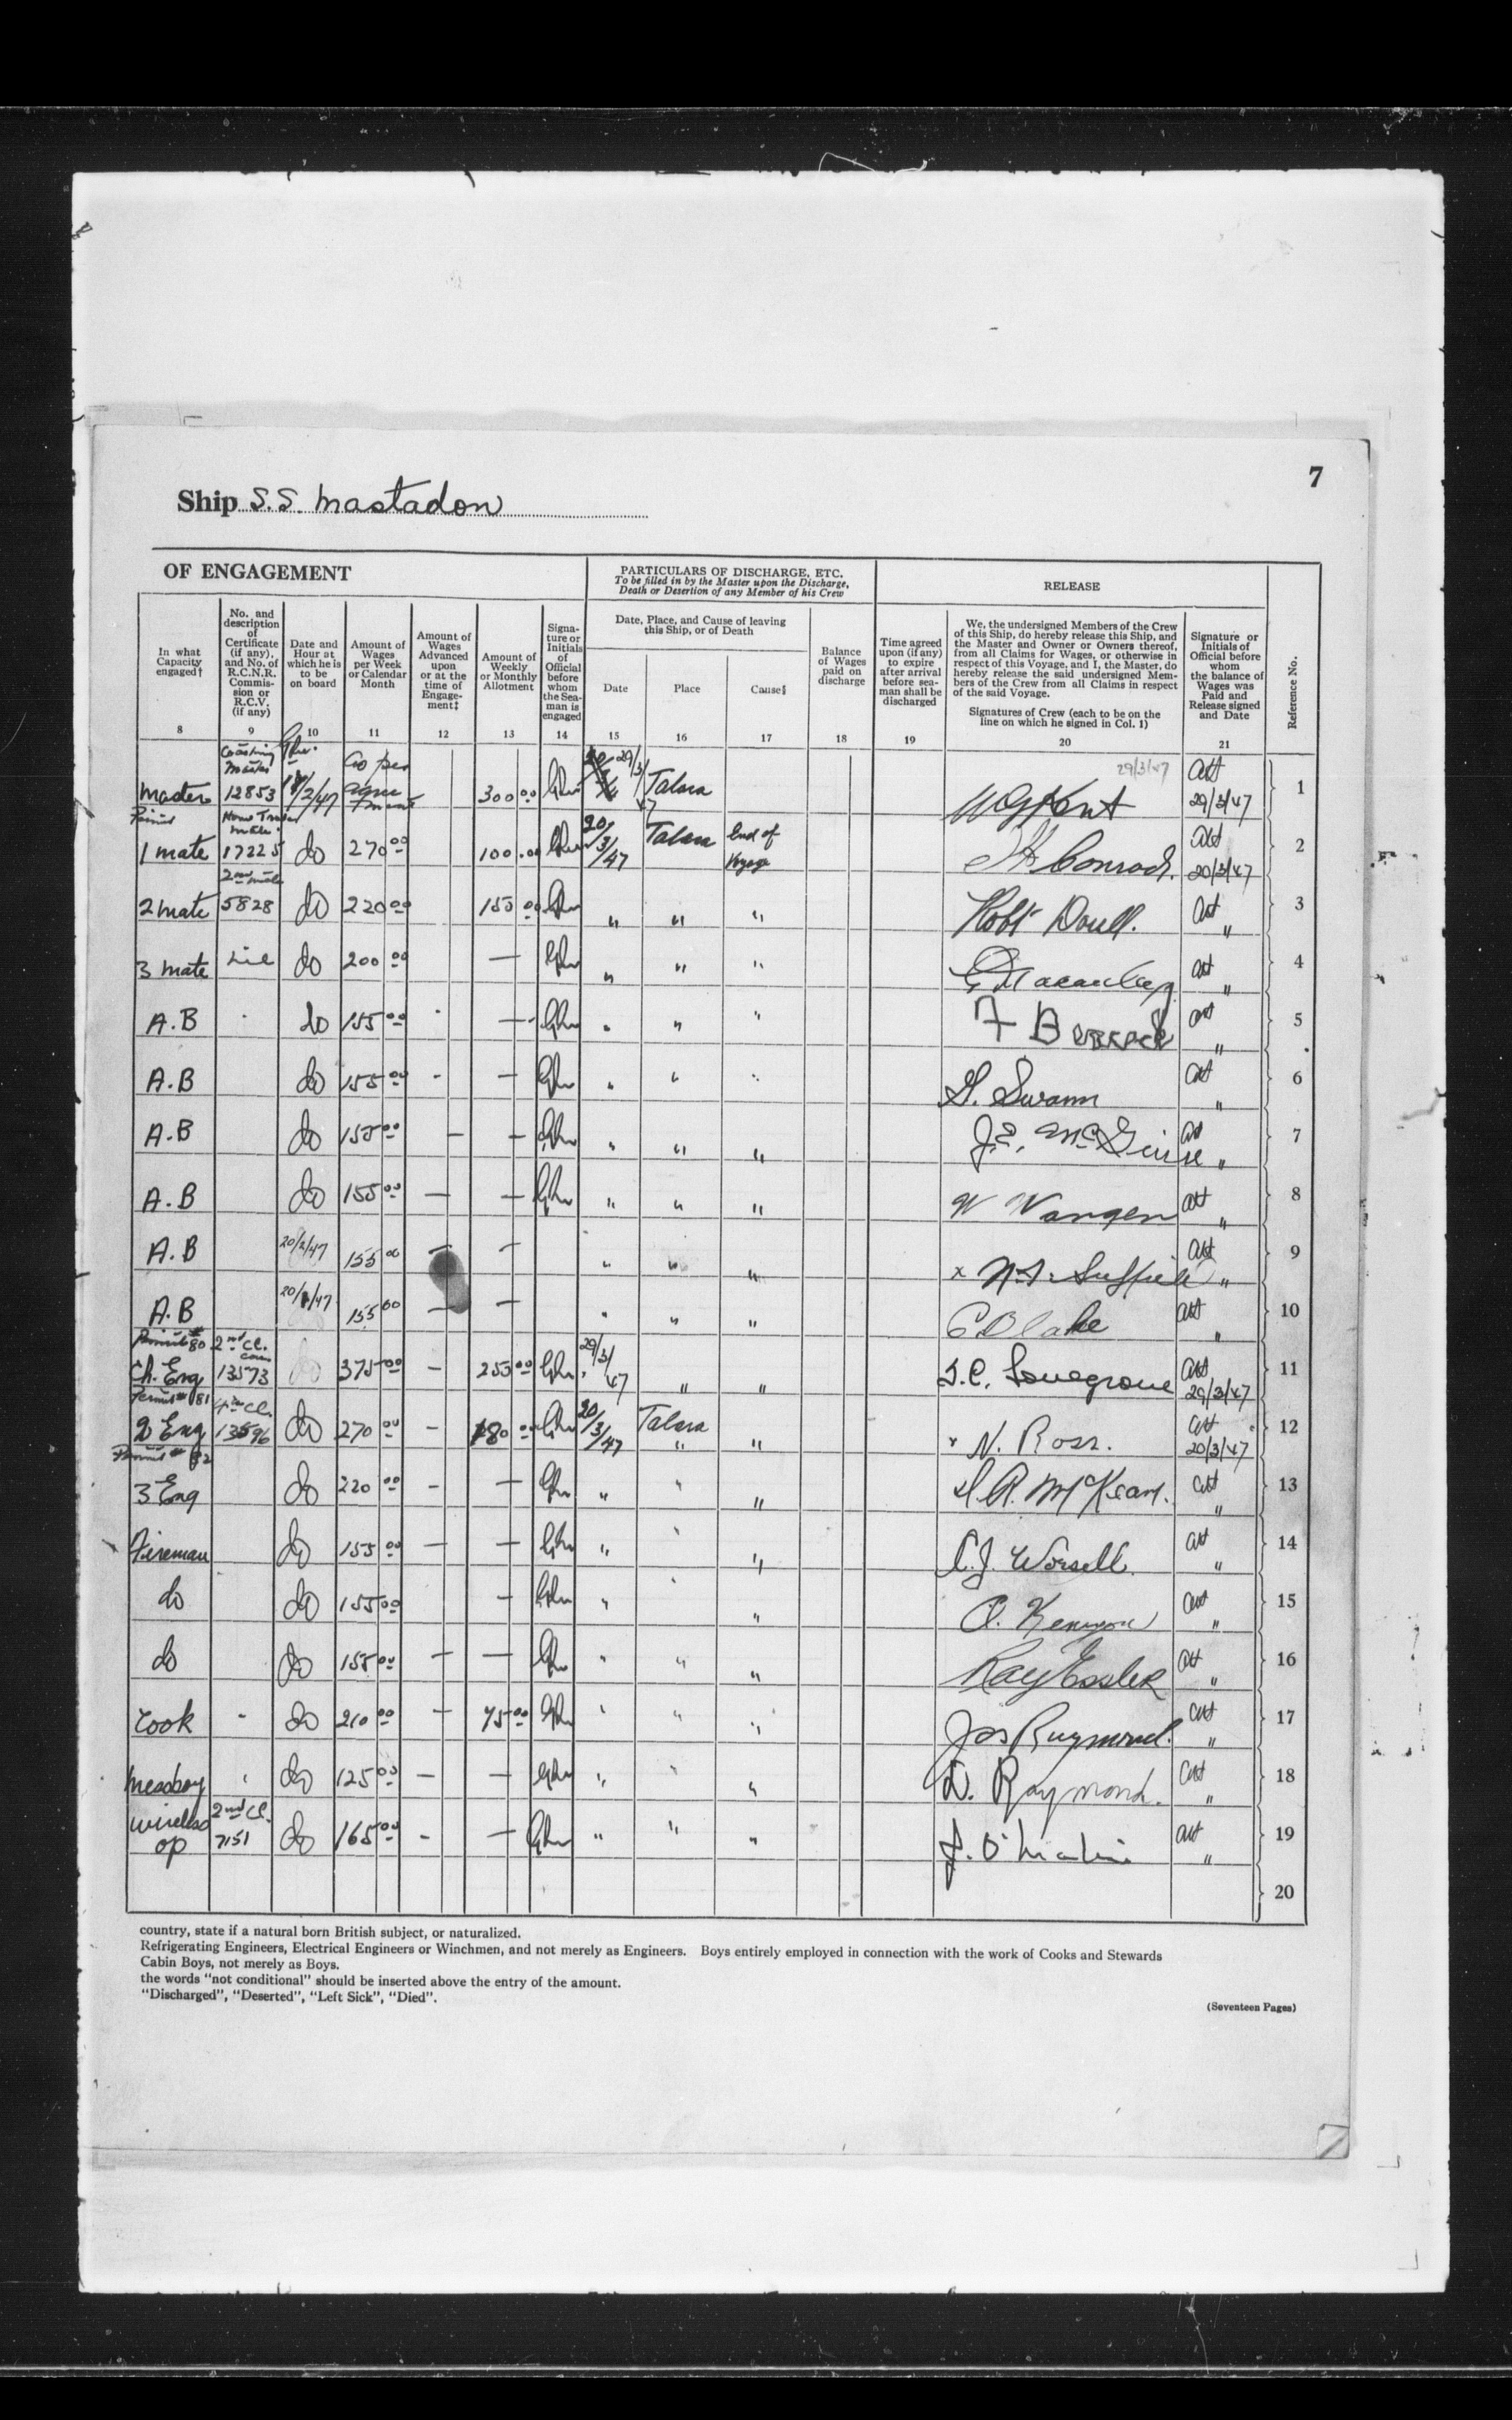 7
Ship S.S. Mastadon
OF ENGAGEMENT
PARTICULARS OF DISCHARGE, ETC.
To be filled in by the Master upon the Discharge,
Death or Desertion of any Member of his Crew
RELEASE
In what Capacity engaged†
No. and description of Certificate (if any), and No. of R.C.N.R. Commission or R.C.V. (if any)
Date and Hour at which he is to be on board
Amount of Wages per Week or Calendar Month
Amount of Wages Advanced upon or at the time of Engagement‡
Amount of Weekly or Monthly Allotment
Signature or Initials of Official before whom the Seaman is engaged
Date, Place, and Cause of leaving this Ship, or of Death
Date
Place
Cause§
Balance of Wages paid on discharge
Time agreed upon (if any) to expire after arrival before seaman shall be discharged
We, the undersigned Members of the Crew of this Ship, do hereby release this Ship, and the Master and Owner or Owners thereof, from all Claims for Wages, or otherwise in respect of this Voyage, and I, the Master, do hereby release the said undersigned Members of the Crew from all Claims in respect of the said Voyage.
Signatures of Crew (each to be on the line on which he signed in Col. 1)
Signature or Initials of Official before whom the balance of Wages was Paid and Release signed and Date
Reference No.
8 9 10 11 12 13 14 15 16 17 18 19 20 21
Master Coasting Master 12853 /2/47 as per agreement 300.00 29/3/47 Talara W G Kent 29/3/47 29/3/47 1
1 mate 17225 do 270.00 100.00 20/3/47 Talara End of Voyage Conrod. 20/3/47 2
2 mate 2nd mate 5828 do 220.00 155.00 " " " Robt Doull. " 3
3 mate do 200.00 — " " " Macaulay " 4
A.B do 155.00 — " " " F " 5
A.B do 155.00 - — " " " Swann " 6
A.B do 155.00 — — " " " J.E. McGuire " 7
A.B do 155.00 — — " " " W Wangen " 8
A.B 20/2/47 155.00 — — " " " x Suffield " 9
A.B 20/2/47 155.00 — — " " " Blake " 10
Permit # 80 Ch. Eng 2nd Cl. 13573 do 375.00 - 253.00 29/3/47 " " Lovegrove 29/3/47 11
Permit # 81 2 Eng 4th Cl. 13596 do 270.00 - 180.00 20/3/47 Talara " " x N. Ross. 20/3/47 12
Permit # 82 3 Eng do 220.00 - — " " " McKean. " 13
Fireman do 155.00 — — " " " Worsell. " 14
do do 155.00 — " " " Kenyon " 15
do do 155.00 — — " " " Ray Essler " 16
Cook - do 210.00 — 75.00 " " " Jas Raymond. " 17
Messboy do 125.00 — — " " " D. Raymond. " 18
Wireless op 2nd Cl. 7151 do 165.00 - — " " " " 19
20
country, state if a natural born British subject, or naturalized.
Refrigerating Engineers, Electrical Engineers or Winchmen, and not merely as Engineers. Boys entirely employed in connection with the work of Cooks and Stewards
Cabin Boys, not merely as Boys.
the words "not conditional" should be inserted above the entry of the amount.
"Discharged", "Deserted", "Left Sick", "Died".
(Seventeen Pages)